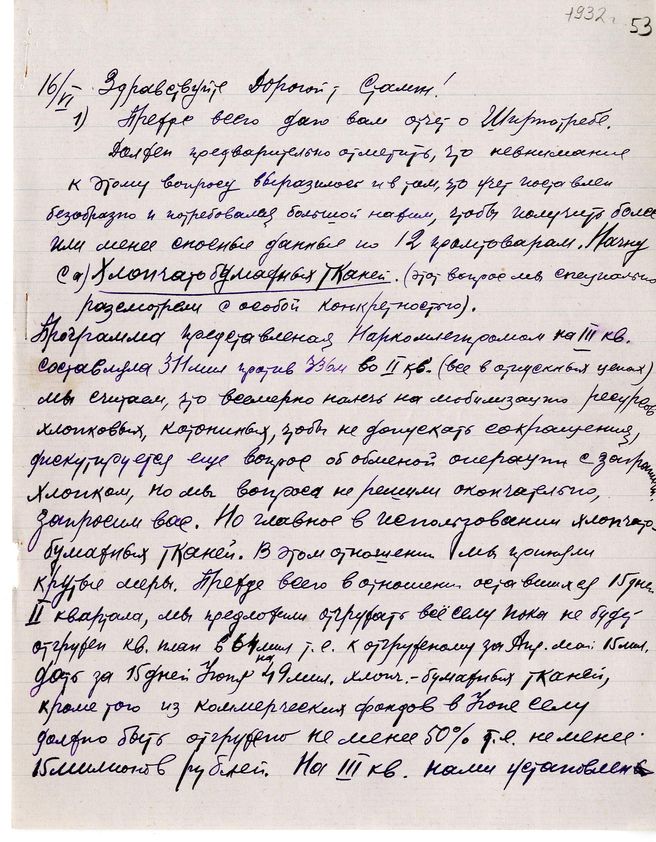 1932 г. 53
16/VI Здравствуйте Дорогой т Сталин!
1) Прежде всего даю вам отчет о Ширпотребе.
Должен предварительно отметить, что невнимание
к этому вопросу выразилось и в том, что учет поставлен
безобразно и потребовался большой нажим, чтобы получить более
или менее сносные данные по 12 промтоварам. Начну
с а) Хлопчатобумажных Тканей. (этот вопрос мы специально
рассмотрели с особой конкретностью).
Программа представленая Наркомлегпромом на III кв.
составляла 311 мил против 336м во II кв. (все в отпускных ценах)
мы считаем, что всемерно налечь на мобилизацию ресурсов
хлопковых, котонинных, чтобы не допускать сокращения,
дискутируется еще вопрос об обменой операции с загранич.
хлопком, но мы вопроса не решили окончательно,
запросим вас. Но главное в использовании хлопчато-
бумажных тканей. В этом отношении мы приняли
крутые меры. Прежде всего в отношении оставшихся 15 дней
II квартала, мы предложили отгружать всё селу пока не будет
отгружен кв. план в 64 мил т.е. к отгруженому за Апр. май 15 мил.
дать за 15 дней Июня на 49 мил. хлопч.-бумажных тканей,
кроме того из коммерческих фондов в Июне селу
должно быть отгружено не менее 50% т.е. не менее
15 милионов рублей. На III кв. нами установлен